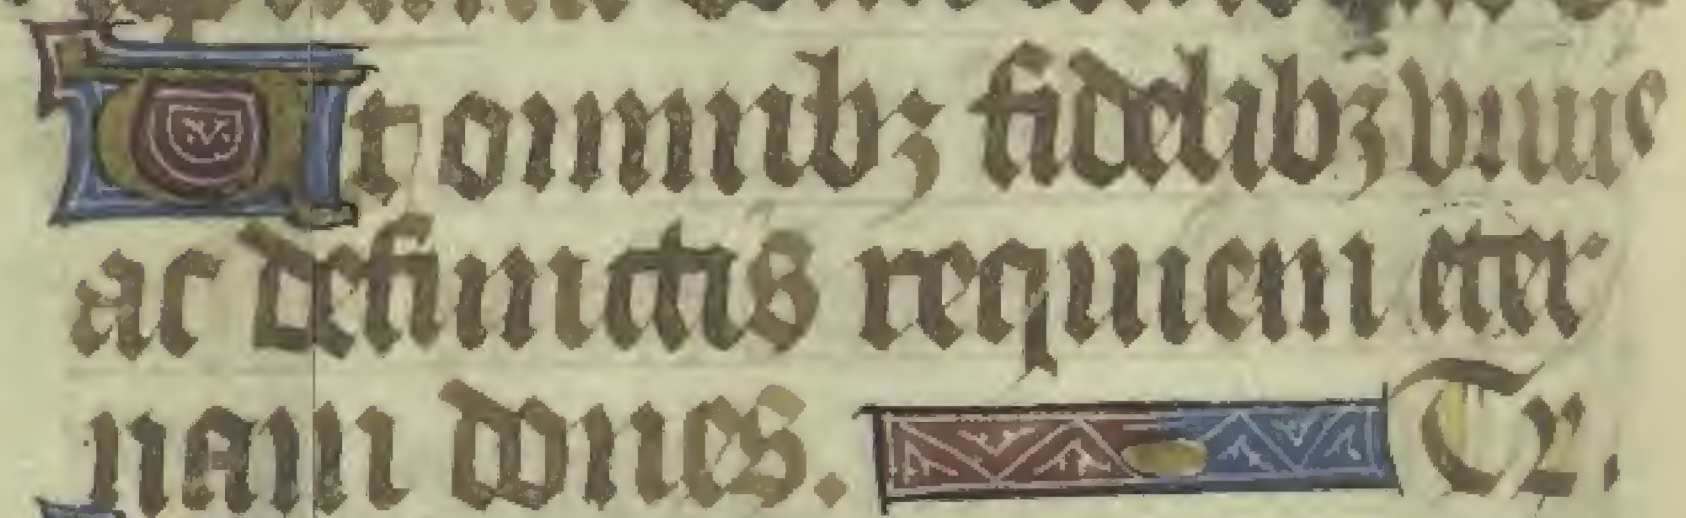 Ut omnibꝫ fidelibꝫ viuis
ac defunctis requiem eter
nam dones. Te.